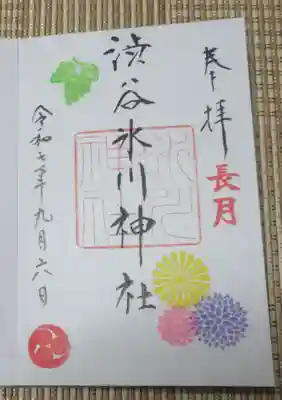 奉拝
長月
渋谷氷川神社
氷川神社
令和七年九月六日